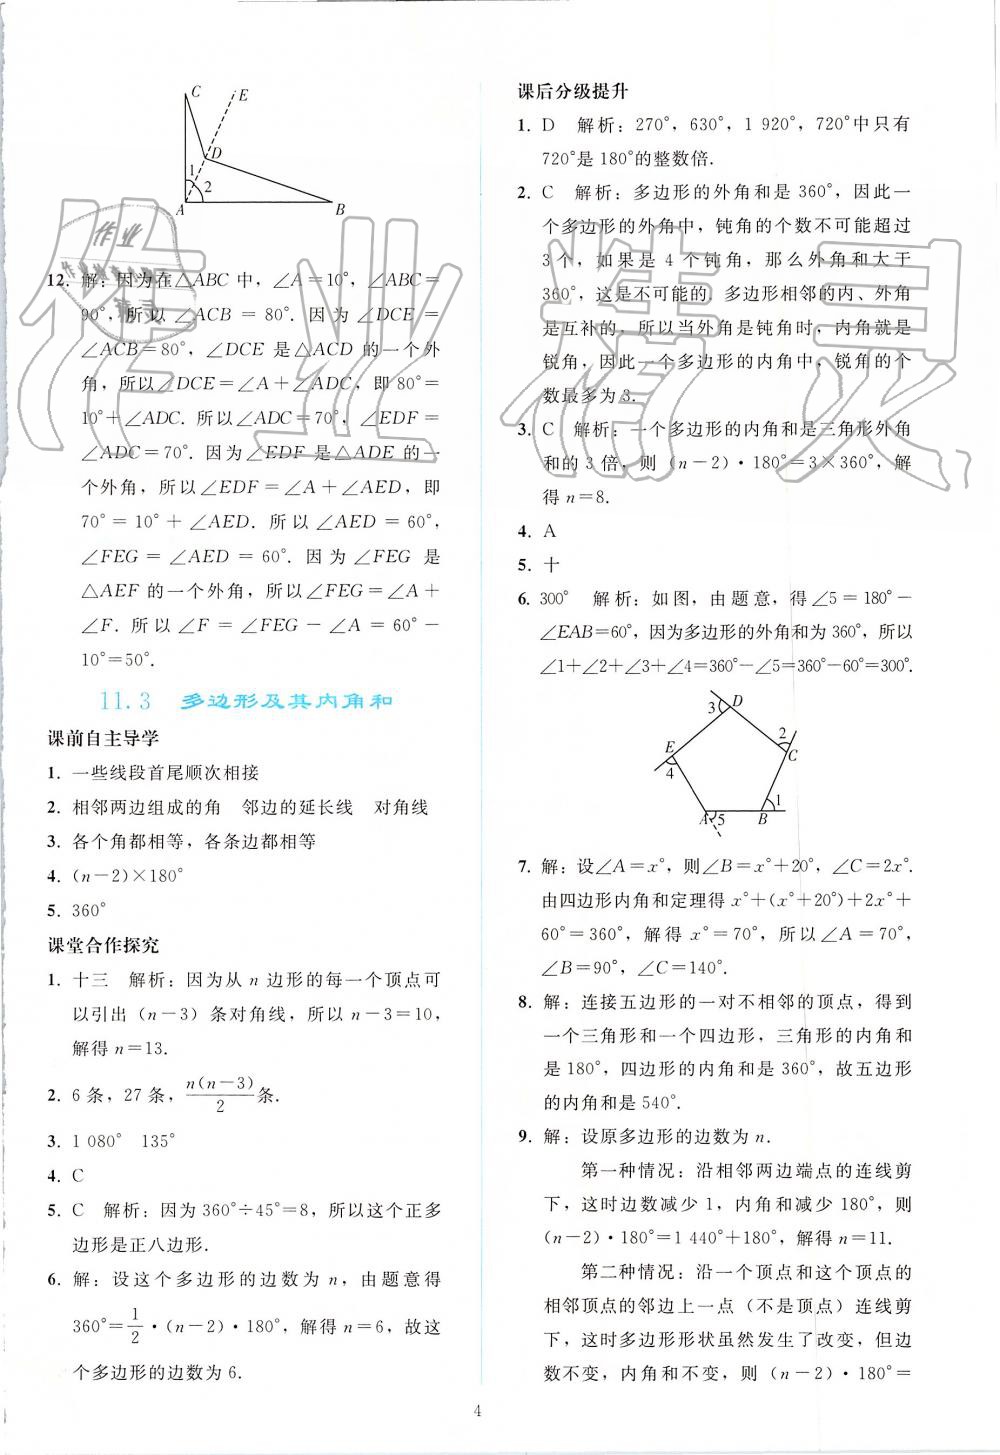 C
E
D
1
2
A
B
12. 解：因为在△ABC 中，∠A＝10°，∠ABC＝
90°，所以 ∠ACB ＝ 80°. 因为 ∠DCE ＝
∠ACB＝80°，∠DCE 是△ACD 的一个外
角，所以∠DCE＝∠A＋∠ADC，即 80°＝
10°＋∠ADC. 所以∠ADC＝70°，∠EDF＝
∠ADC＝70°. 因为∠EDF 是△ADE 的一
个外角，所以∠EDF＝∠A＋∠AED，即
70° ＝ 10° ＋ ∠AED. 所以 ∠AED ＝ 60°，
∠FEG ＝ ∠AED ＝ 60°. 因为 ∠FEG 是
△AEF 的一个外角，所以∠FEG＝∠A＋
∠F. 所以 ∠F ＝ ∠FEG － ∠A ＝ 60° －
10°＝50°.
11.3 多边形及其内角和
课前自主导学
1. 一些线段首尾顺次相接
2. 相邻两边组成的角 邻边的延长线 对角线
3. 各个角都相等，各条边都相等
4. (n－2)×180°
5. 360°
课堂合作探究
1. 十三 解析：因为从 n 边形的每一个顶点可
以引出（n－3）条对角线，所以 n－3＝10，
解得 n＝13.
2. 6 条，27 条，n(n－3)/2 条.
3. 1 080° 135°
4. C
5. C 解析：因为 360°÷45°＝8，所以这个正多
边形是正八边形.
6. 解：设这个多边形的边数为 n，由题意得
360°＝1/2·(n－2)·180°，解得 n＝6，故这
个多边形的边数为 6.
课后分级提升
1. D 解析：270°，630°，1 920°，720°中只有
720°是 180°的整数倍.
2. C 解析：多边形的外角和是 360°，因此一
个多边形的外角中，钝角的个数不可能超过
3 个，如果是 4 个钝角，那么外角和大于
360°，这是不可能的. 多边形相邻的内、外角
是互补的，所以当外角是钝角时，内角就是
锐角，因此一个多边形的内角中，锐角的个
数最多为 3.
3. C 解析：一个多边形的内角和是三角形外角
和的 3 倍，则（n－2）·180°＝3×360°，解
得 n＝8.
4. A
5. 十
6. 300° 解析：如图，由题意，得∠5＝180°－
∠EAB＝60°，因为多边形的外角和为 360°，所以
∠1＋∠2＋∠3＋∠4＝360°－∠5＝360°－60°＝300°.
3
D
2
E
C
4
1
A
5
B
7. 解：设∠A＝x°，则∠B＝x°＋20°，∠C＝2x°.
由四边形内角和定理得 x°＋(x°＋20°)＋2x°＋
60°＝360°，解得 x°＝70°，所以∠A＝70°，
∠B＝90°，∠C＝140°.
8. 解：连接五边形的一对不相邻的顶点，得到
一个三角形和一个四边形，三角形的内角和
是 180°，四边形的内角和是 360°，故五边形
的内角和是 540°.
9. 解：设原多边形的边数为 n.
第一种情况：沿相邻两边端点的连线剪
下，这时边数减少 1，内角和减少 180°，则
（n－2）·180°＝1 440°＋180°，解得 n＝11.
第二种情况：沿一个顶点和这个顶点的
相邻顶点的邻边上一点（不是顶点）连线剪
下，这时多边形形状虽然发生了改变，但边
数不变，内角和不变，则（n－2）·180°＝
4
作业精灵
作业
精灵